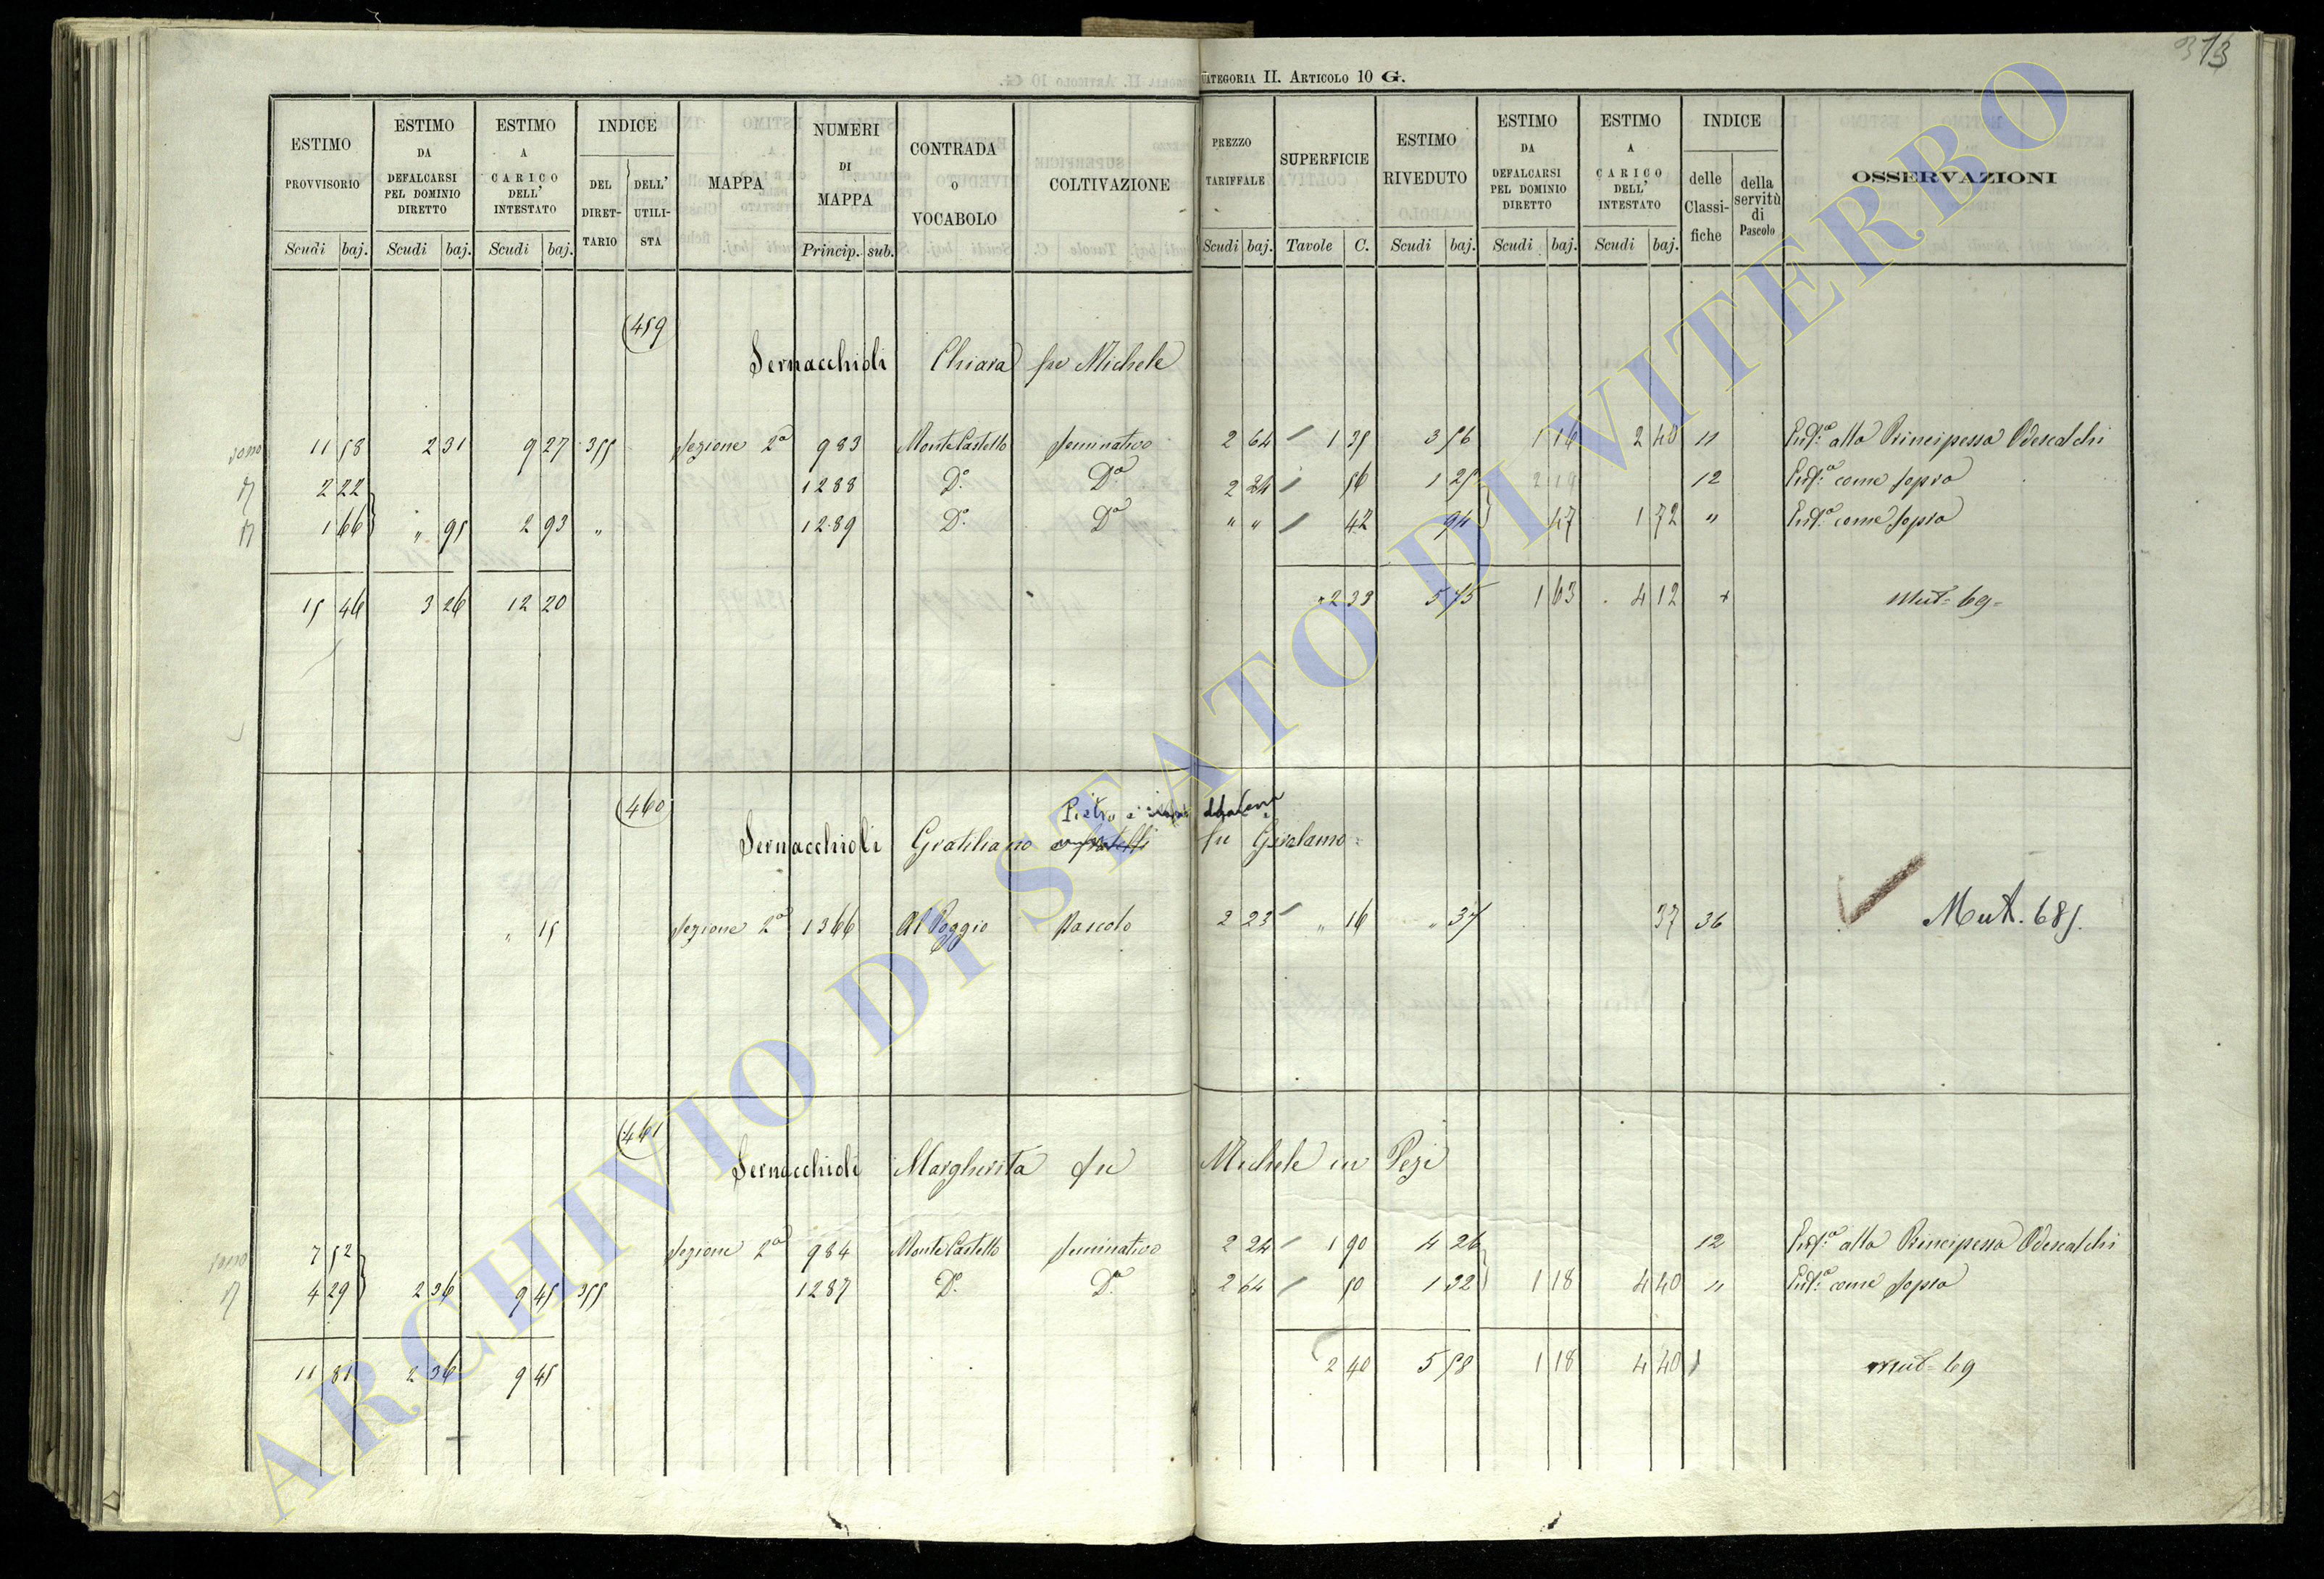 CATEGORIA II. ARTICOLO 10 G.
313
ESTIMO PROVVISORIO Scudi baj.
ESTIMO DA DEFALCARSI PEL DOMINIO DIRETTO Scudi baj.
ESTIMO A CARICO DELL' INTESTATO Scudi baj.
INDICE DEL DIRETTARIO DELL' UTILISTA
MAPPA
NUMERI DI MAPPA Princip. sub.
CONTRADA O VOCABOLO
COLTIVAZIONE
PREZZO TARIFFALE Scudi baj.
SUPERFICIE Tavole C.
ESTIMO RIVEDUTO Scudi baj.
ESTIMO DA DEFALCARSI PEL DOMINIO DIRETTO Scudi baj.
ESTIMO A CARICO DELL' INTESTATO Scudi baj.
INDICE delle Classifiche della servitù di Pascolo
OSSERVAZIONI
459
Sernacchioli Chiara fu Michele
11 58 2 31 9 27 355 Sezione 2a 983 Monte Castello Seminativo 2 64 1 35 3 56 1 16 2 40 11 Enfa alla Principessa Odescalchi
2 22 1288 Do Do 2 24 56 1 25 12 Enfa come sopra
1 66 " 95 2 93 " 1289 Do Do " " 42 94 47 1 72 " Enfa come sopra
15 46 3 26 12 20 2 33 5 75 1 63 4 12 Mut= 69=
460
Pietro e
Sernacchioli Gratiliano fu Girolamo
" 15 Sezione 2a 1366 Al Poggio Pascolo 2 23 " 16 " 37 37 36 Mut. 685.
461
Sernacchioli Margherita fu Michele in Pezi
7 52 Sezione 2a 984 Monte Castello Seminativo 2 24 1 90 4 26 12 Enfa alla Principessa Odescalchi
4 29 2 36 9 45 355 1287 Do Do 2 64 50 1 32 1 18 4 40 11 Enfa come sopra
11 81 2 36 9 45 2 40 5 58 1 18 4 40 Mut= 69
ARCHIVIO DI STATO DI VITERBO